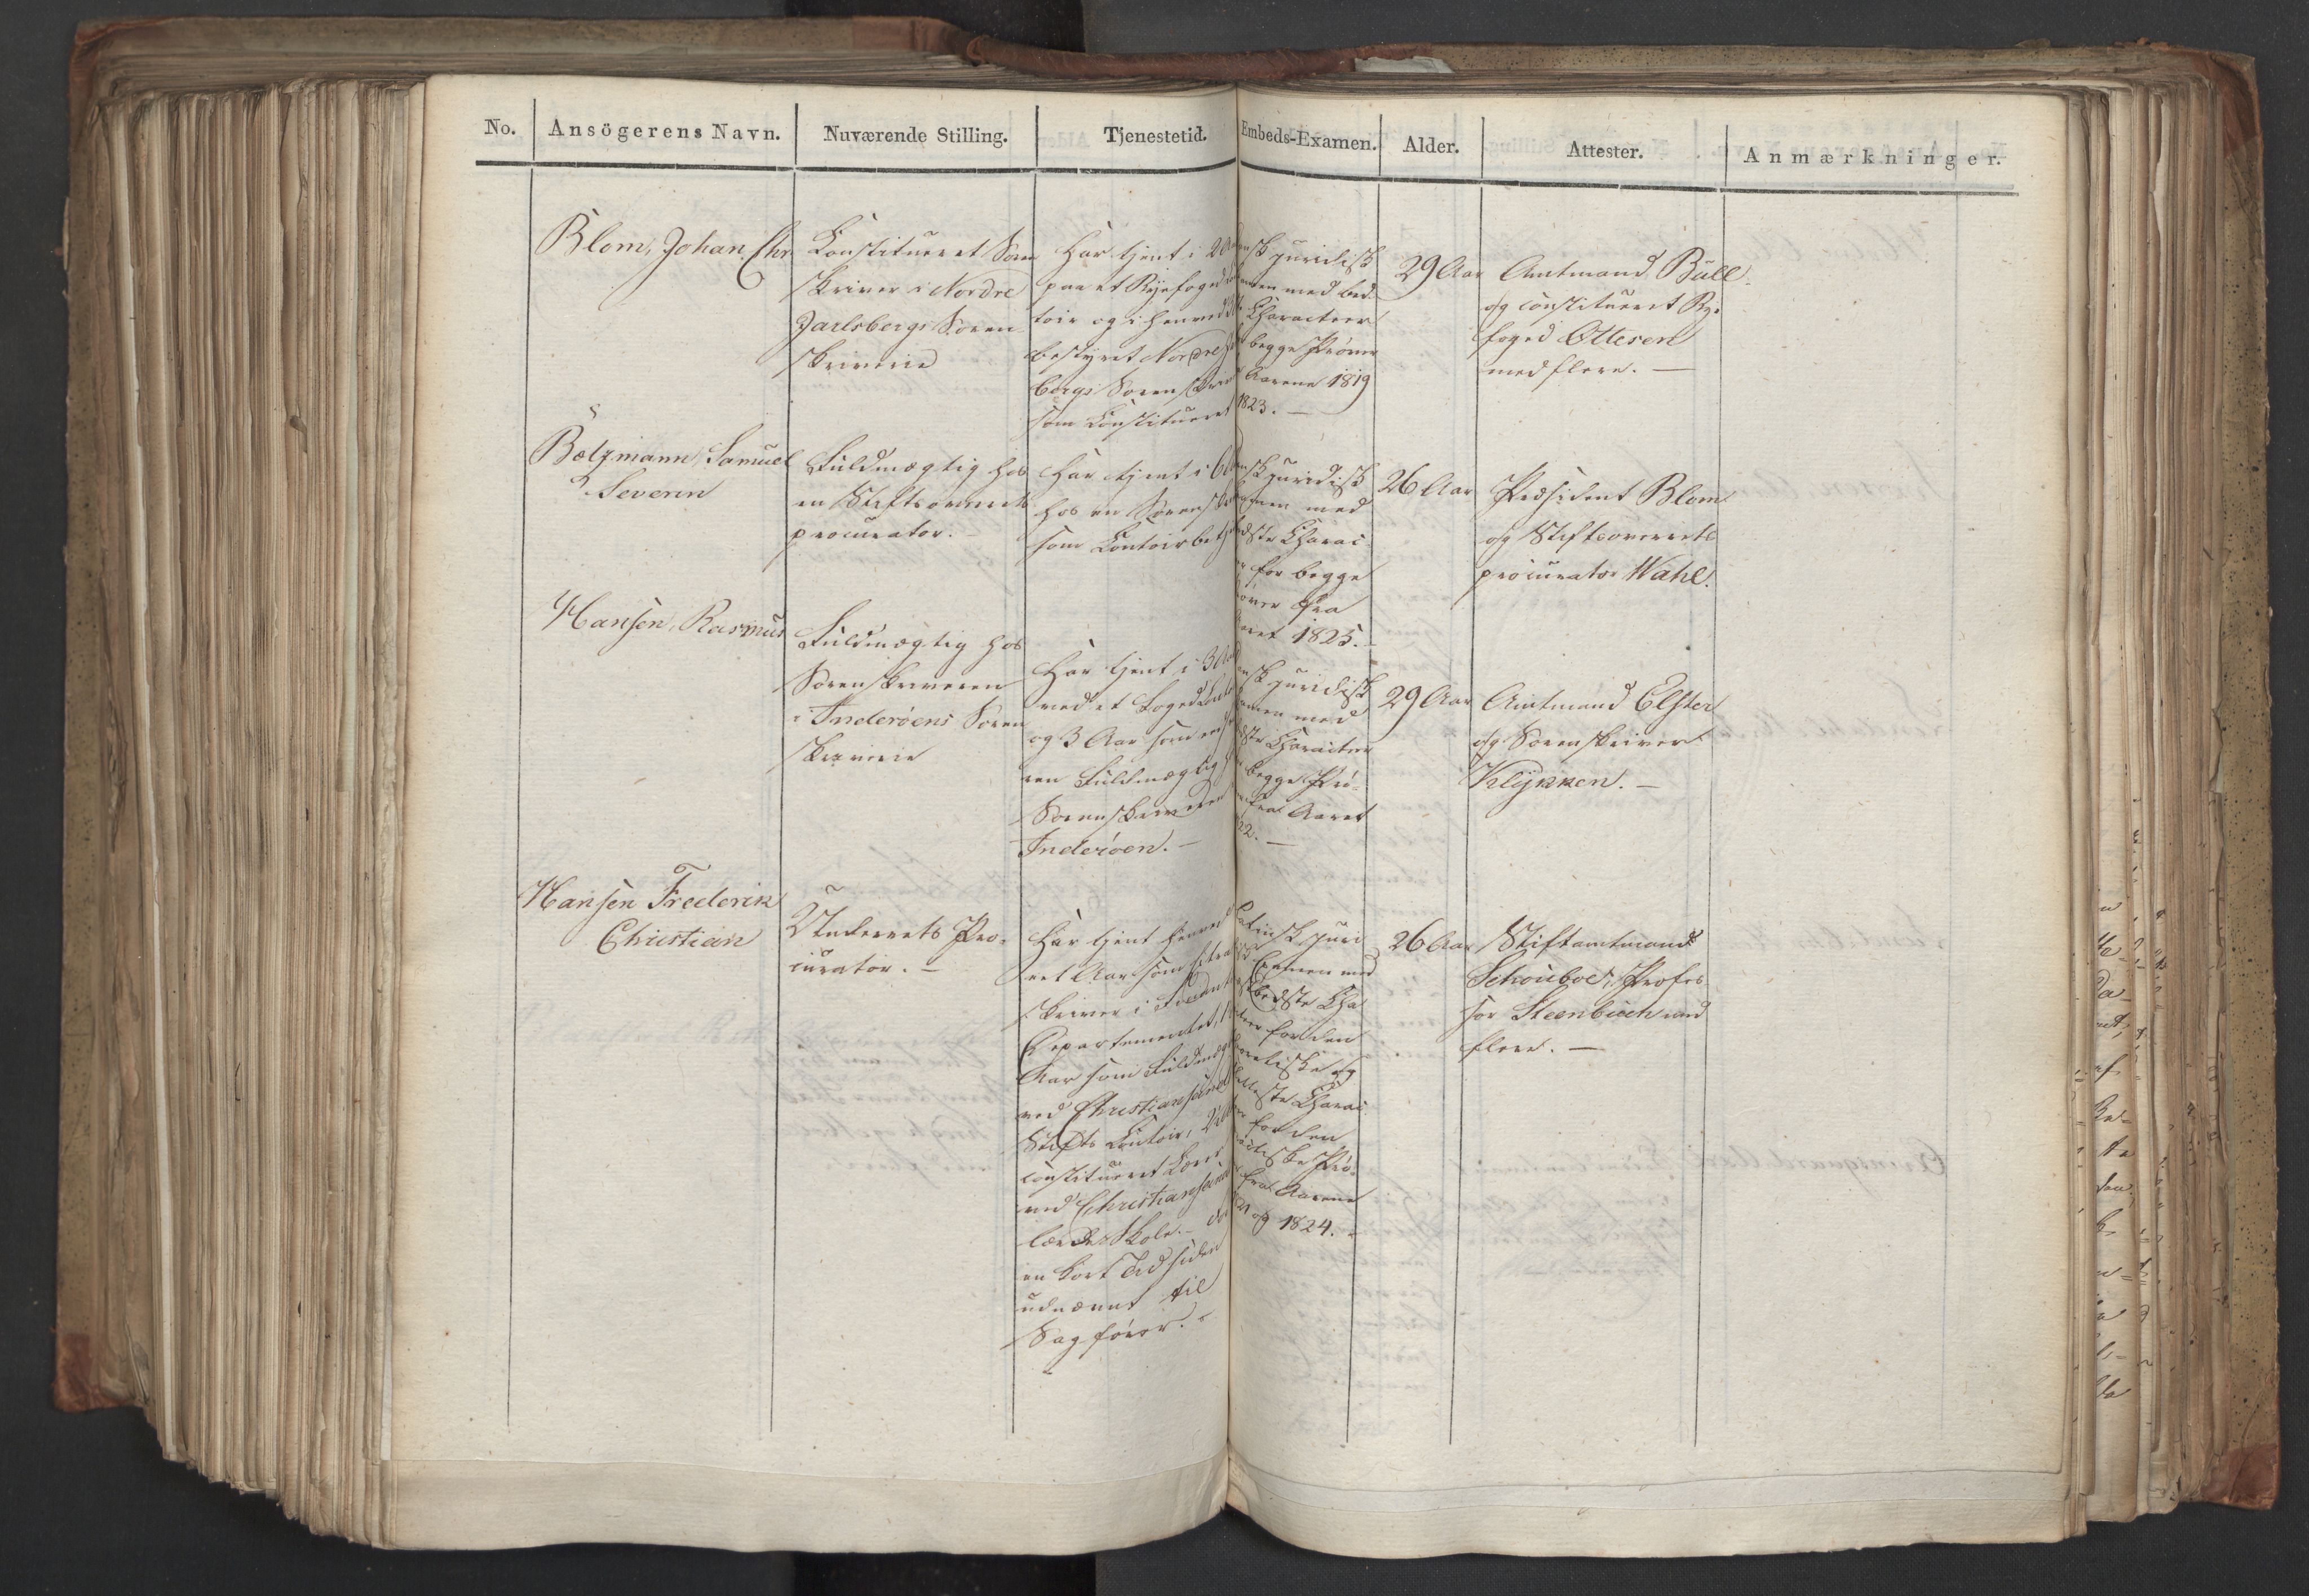 No. Ansögerens Navn. Nuværende Stilling. Tjenestetid. Embeds-Examen. Alder. Attester. Anmærkninger.
Blom, Johan Chr.
Constitueret Soren
skriver i Nordre
Jarlsbergs Soren
skriverie
Har tjent i 2 Aar
paa et Byefoged
toir og i henved
bestyret Nordre
bergs Sorenskri
som Constitueret
nsk juridisk
men med bed
Characteer
begge Prøver
Aarene 1819
1823. —
29 Aar
Amtmand Bull
og constitueret By-
foged Ottesen
med flere. —
Bølzmann, Samuel
Severin
Fuldmægtig hos
en Stiftsoverrets
procurator. —
Har tjent i 6
hos en Sorensk
som Contoirbetj
nsk juridisk
men med
dste Charac
for begge
øver fra
aret 1825.
26 Aar
Præsident Blom
og Stiftsoverrets
procurator Wahl.
Hansen, Rasmus
Fuldmægtig hos
Sorenskriveren
i Inderøens Soren
skriverie
Har tjent i 3 Aar
ved et Foged Cont
og 3 Aar som
ren Fuldmægtig
Sorenskriveren
Inderøen. —
nsk juridisk
amen med
dste Characteer
begge Prø-
fra Aaret
22. —
29 Aar
Amtmand Elster
og Sorenskriver
Klykken. —
Hansen Frederik
Christian
Underrets Pro-
curator. —
Har tjent henved
eet Aar som extra
skriver i Finants
Departementet, 1
Aar som Fuldmægt
ved Christiansand
Stifts Contoir,
constitueret Lærer
ved Christiansand
lærde Skole. —
en kort Tid siden
udnævnt til
Sagfører. —
Latinsk juri
Examen med
bedste Cha
teer for den
oretiske og
lleste Charac
for den
ctiske Prø-
fra Aarene
og 1824. —
26 Aar
Stiftamtmand
Schouboe, Profes
sor Steenbuch med
flere. —